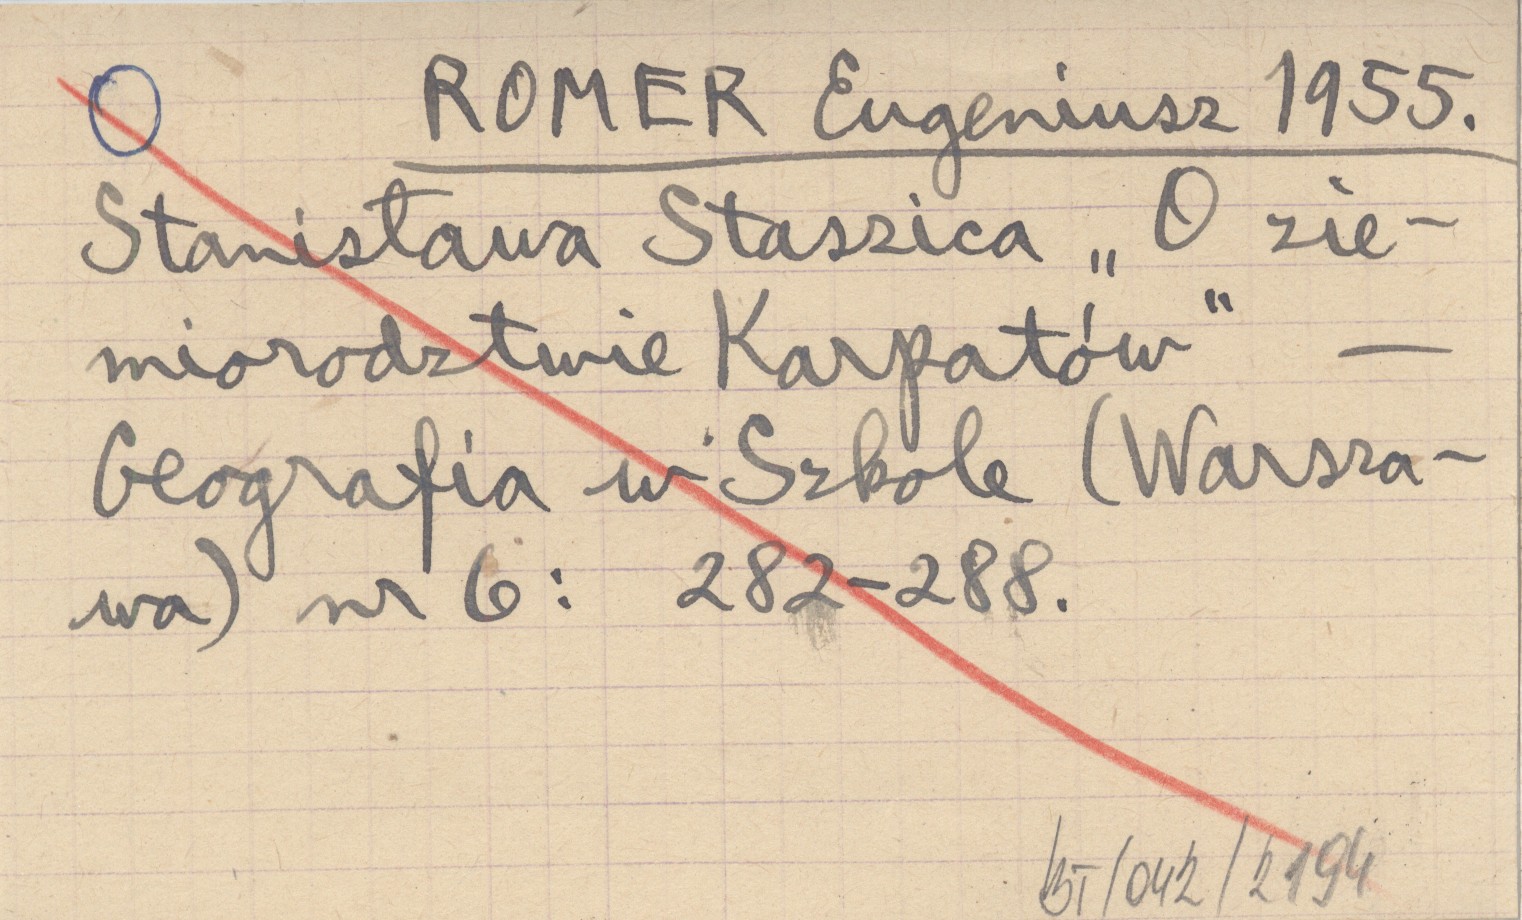 ROMER Eugeniusz 1955.
Stanisława Staszica „O zie-
miorodztwie Karpatów" —
Geografia w Szkole (Warsza-
wa) nr 6: 282-288.
BI/042/2194